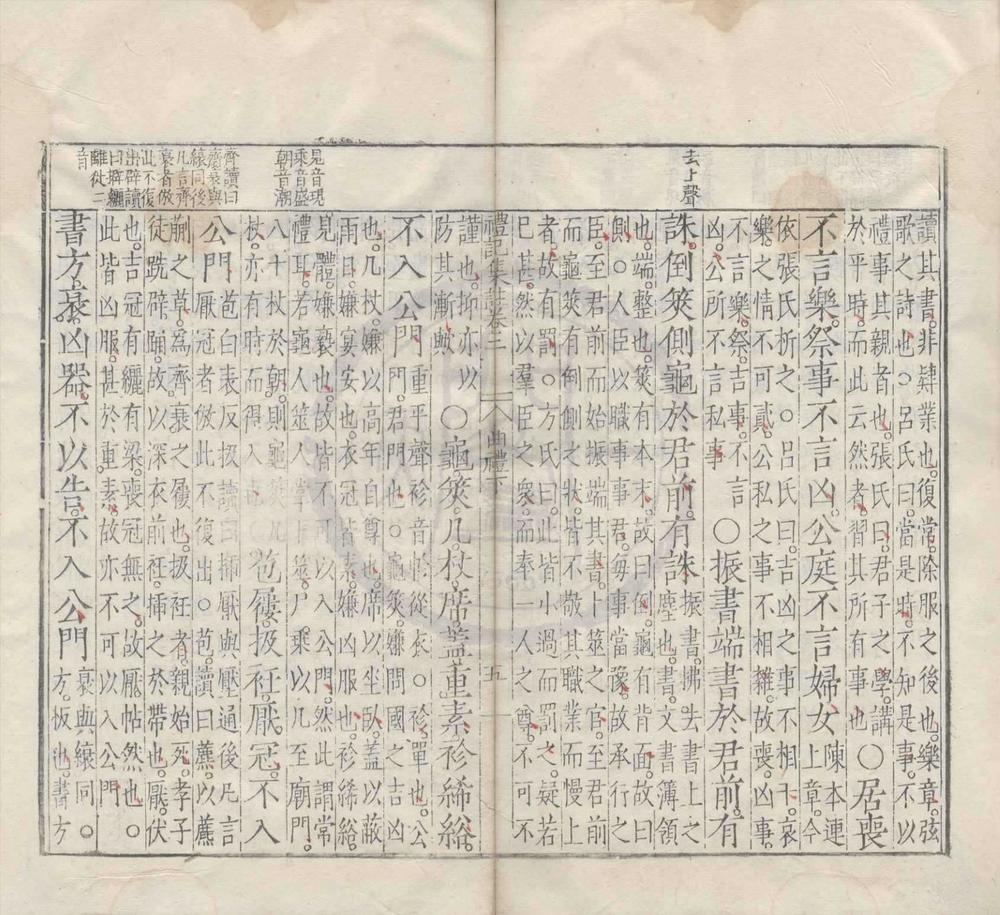 讀其書非肄業也復常除服之後也樂章弦
歌之詩也○呂氏曰當是時不知是事不以
禮事其親者也張氏曰君子之學講
於平時而此云然者習其所有事也
○居喪
不言樂祭事不言凶公庭不言婦女
陳本連
上章今
依張氏折之○呂氏曰吉凶之事不相干哀
樂之情不可貳公私之事不相雜故喪凶事
不言樂祭吉事不言
凶公所不言私事
○振書端書於君前有
去上聲
誅倒筴側龜於君前有誅
振書拂去書上之
塵也書文書簿領
也端整也筴有本末故曰倒龜有背面故曰
側○人臣以職事事君每事當豫故承行之
臣至君前而始振端其書卜筮之官至君前
而龜筴有倒側之狀皆不敬其職業而慢上
者故有罰○方氏曰此皆小過而罰之疑若
巳甚然以羣臣之衆而奉一人之尊不可不
禮記集註卷三 曲禮下 五
謹也抑亦以
防其漸歟
○龜筴几杖席蓋重素袗絺綌
不入公門
重平聲袗音軫從衣○袗單也公
門君門也○龜筴嫌問國之吉凶
也几杖嫌以高年自尊也席以坐臥蓋以蔽
雨日嫌宴安也衣冠皆素嫌凶服也袗絺綌
見音現
乘音盛
朝音潮
見體嫌褻也故皆不可以入公門然此謂常
禮耳若龜人筮人掌卜筮尸乘以几至廟門
八十杖於朝則龜筴几
杖亦有時而得入
苞屨扱衽厭冠不入
齊讀曰
衰與
縗同後
凡言齊
衰者倣
此不復
出辟讀
曰擗纚
離徙二
音
公門
苞白表反扱讀曰插厭與壓通後凡言
厭冠者倣此不復出○苞讀曰藨以藨
蒯之草爲齊衰之屨也扱衽者親始死孝子
徒跣辟踊故以深衣前衽插之於帶也厭伏
也吉冠有纚有梁喪冠無之故厭帖然也○
此皆凶服甚於重素故亦不可以入公門
書方衰凶器不以告不入公門
衰與縗同○
方板也書方